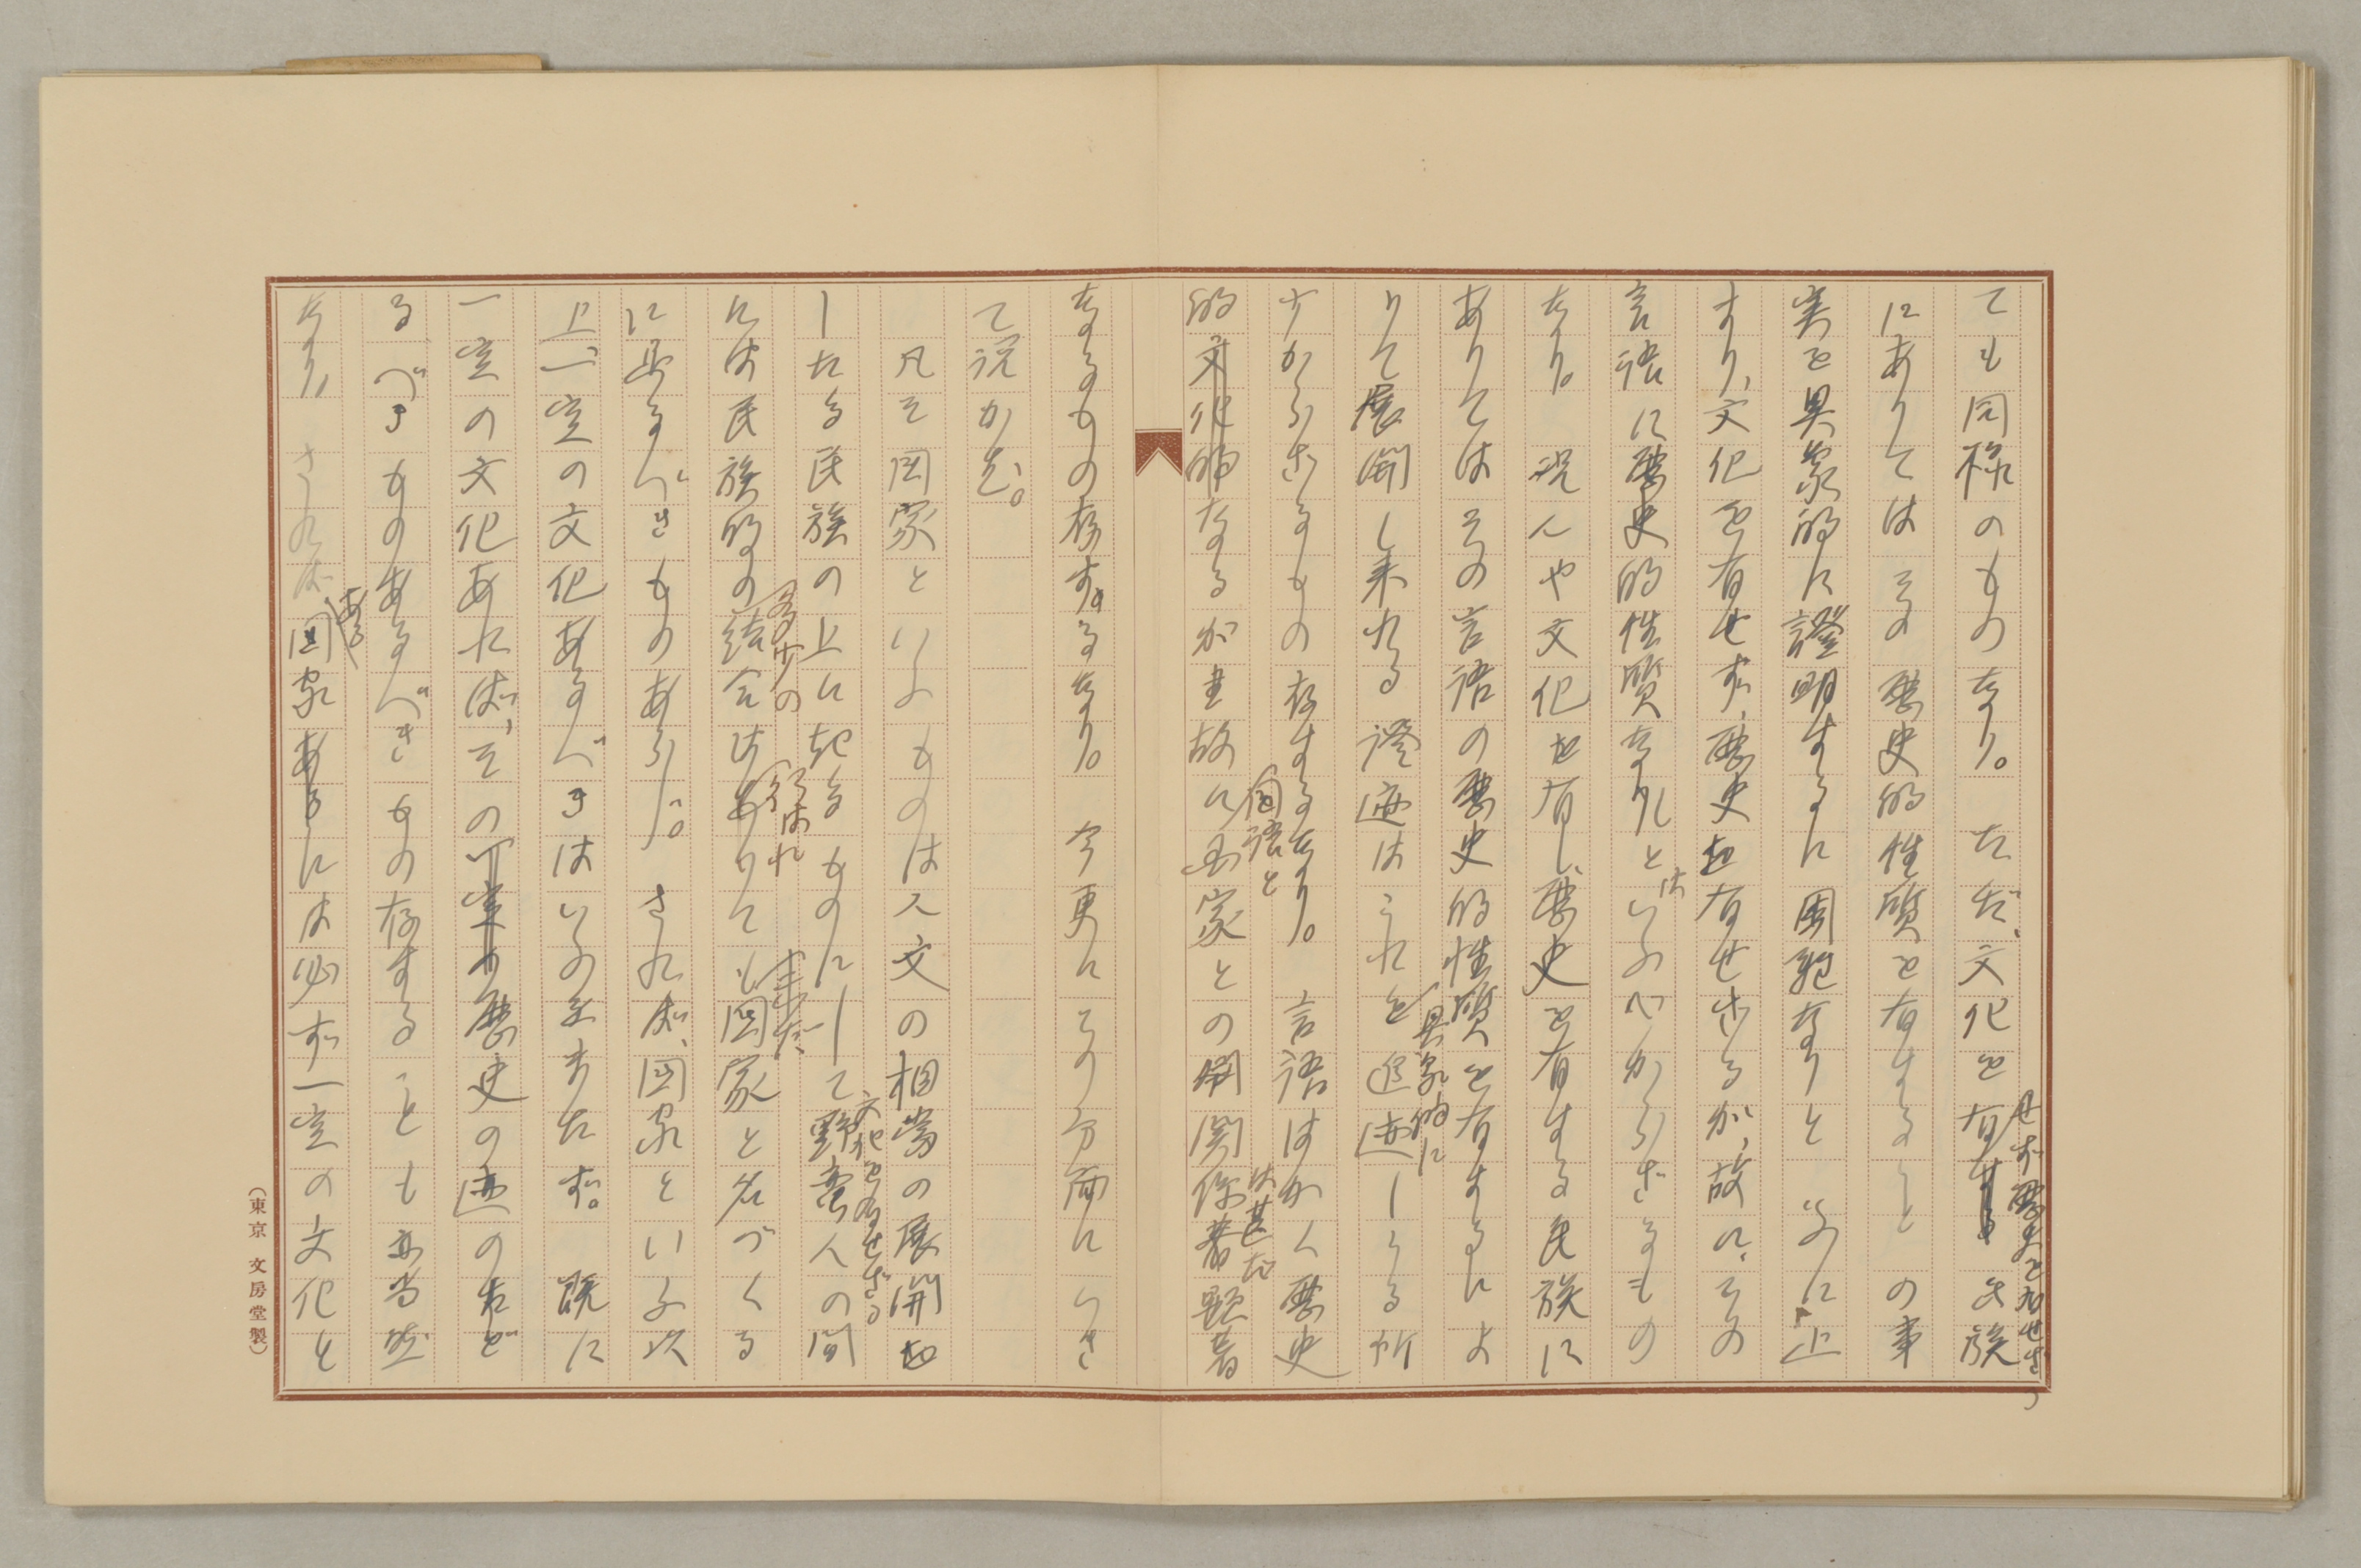 ても同様のものなり。ただ、文化を有せず歴史を有せざる民族
にありてはその歴史的性質を有することの事
実を具象的に證明するに困難なりといふに止
まり、文化を有せず、歴史を有せざるが故に、その
言語に歴史的性質なしとはいふべからざるもの
なり。況んや文化を有し、歴史を有する民族に
ありてはその言語の歴史的性質を有するによ
りて展開し来れる證迹はこれを具象的に追迹しうる所
少からざるもの存するなり。言語はかく歴史
的なるが故に国語と国家との関係は甚だ顕著
なるもの存するなり。今更にその方面につき
て説かむ。
凡そ国家といふものは人文の相当の展開を
したる民族の上に起るものにして文化を有せざる野蛮人の間
には民族的の多少の結合は行はれありても未だ国家と名づくる
に足るべきものあらず。されば、国家といふ以
上、一定の文化あるべきはいふをまたず。既に
一定の文化あれば、その歴史の迹の存す
るべきものあるべきもの存することも亦当然
なり。されば国家あるには必ず一定の文化と
(東京 文房堂製)